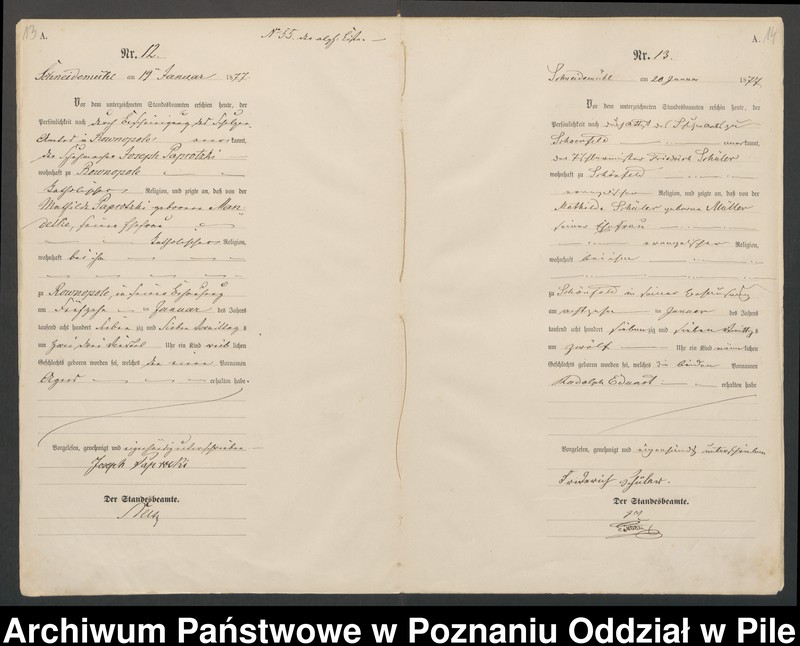 13 A.
Nr. 12.
Schneidemühl am 19 Januar 1877
Vor dem unterzeichneten Standesbeamten erschien heute, der
Persönlichkeit nach durch Bescheinigung des Schulzen
Amtes in Rownopole kannt,
der Joseph Paprotzki
wohnhaft zu Rownopole
katholischer Religion, und zeigte an, daß von der
Mathilde Paprotzki geborene Man
seine Ehefrau
katholischer Religion,
wohnhaft bei ihm
zu Rownopole, in seiner Behausung
am Januar des Jahres
tausend acht hundert sieben zig und sieben Vormittags
um drei Viertel Uhr ein Kind weib lichen
Geschlechts geboren worden sei, welches den einen Vornamen
Agnes erhalten habe.
Vorgelesen, genehmigt und eigenhändig unterschrieben
Joseph Paprotzki
Der Standesbeamte.
No 55. der
A. 14
Nr. 13.
Schneidemühl am 20 Januar 1877.
Vor dem unterzeichneten Standesbeamten erschien heute, der
Persönlichkeit nach
Schoenfeld anerkannt,
der Friedrich Schüler
wohnhaft zu Schönfeld
evangelischer Religion, und zeigte an, daß von der
Mathilde Schüler geborne Müller
seiner Ehefrau
evangelischer Religion,
wohnhaft bei ihm
zu Schönfeld in seiner Behausung
am achtzehn Januar des Jahres
tausend acht hundert siebenzig und sieben Vormittags
um zwölf Uhr ein Kind männlichen
Geschlechts geboren worden sei, welches die beiden Vornamen
Rudolph Eduard erhalten habe
Vorgelesen, genehmigt und eigenhändig unterschrieben
Friderich Schüler.
Der Standesbeamte.
Archiwum Państwowe w Poznaniu Oddział w Pile